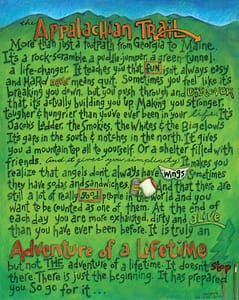 the
APPALACHIAN TRAIL
More than just a footpath from Georgia to Maine.
It's a rock-scramble a puddle-jumper, a green-tunnel.
a life-changer. It teaches you that FUN isn't always easy
and HARD never means quit. Sometimes you feel like it's
breaking you down. but you push through and
that it's actually building you up. Making you stronger.
Tougher & hungrier than you've ever been in your life. It's
Jacobs Ladder, the Smokies, the Whites & the Big Lows
It's gaps in the south & notches in the north. It gives
you a mountain top all to yourself. Or a shelter filled with
friends. And it gives you simplicity. It makes you
realize that angels don't always have wings Sometimes
they have sodas and sandwiches. And that there
still a lot of really good people in the world and you
want to be counted as one of them. At the end of
each day you are more exhausted, dirty and alive
than you have ever been before. It is truly an
Adventure of a Lifetime
but not THE adventure of a lifetime. It doesn't stop
there There is just the beginning. It has prepared
you So go for it...